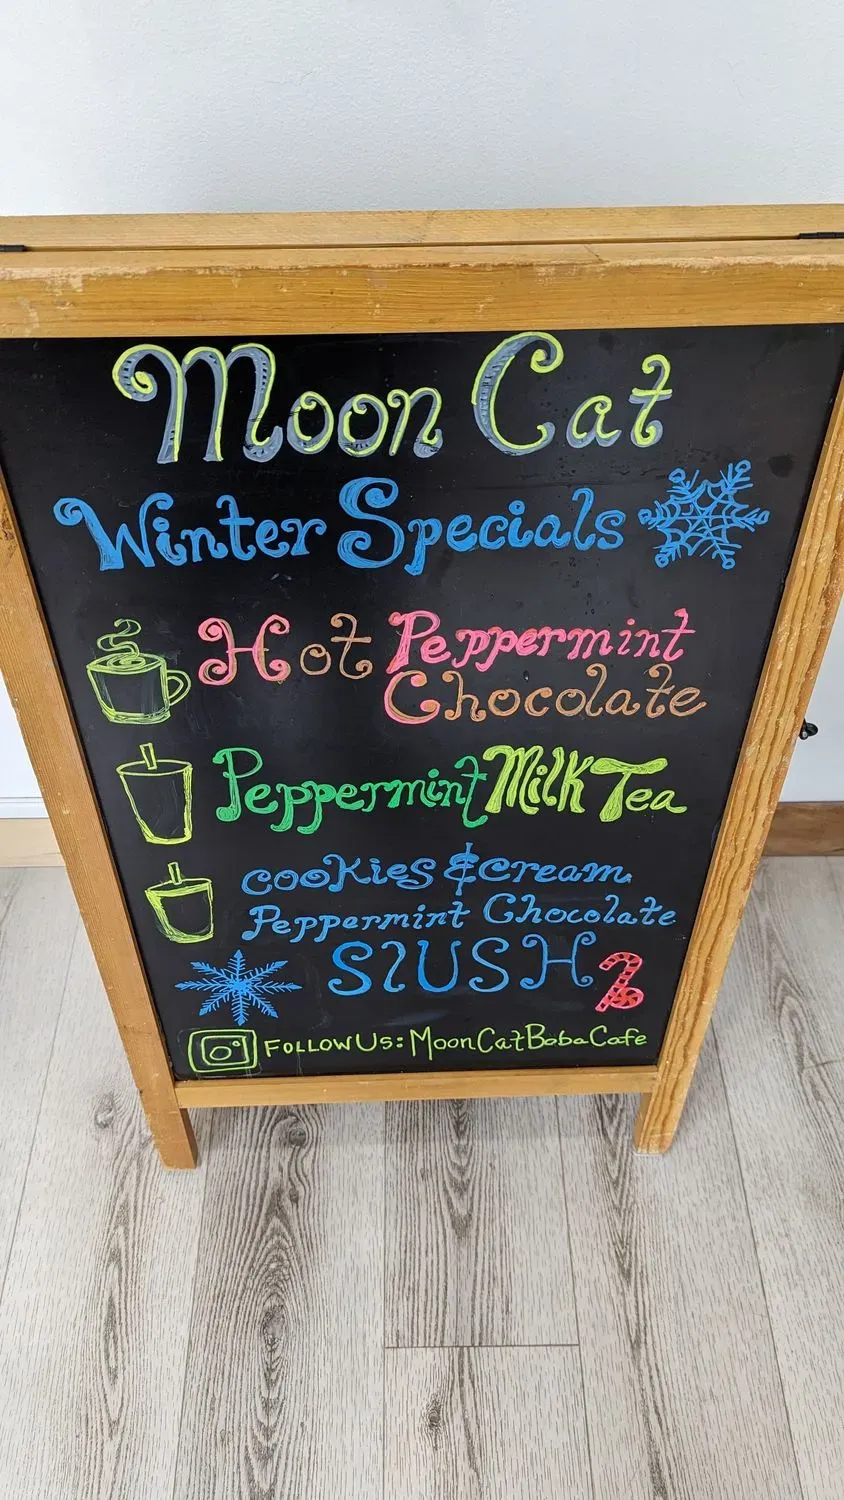 Moon Cat
Winter Specials
Hot Peppermint
Chocolate
Peppermint Milk Tea
cookies & cream
Peppermint Chocolate
SlUSH
Follow Us: MoonCatBobaCafe